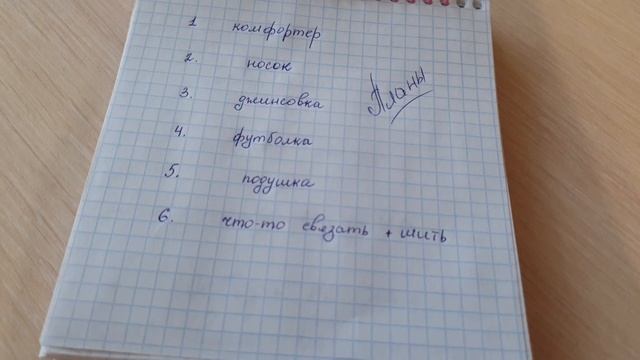 1 комфортер
2. носок
3. джинсовка
Планы
4. футболка
5. подушка
6. что-то связать + шить